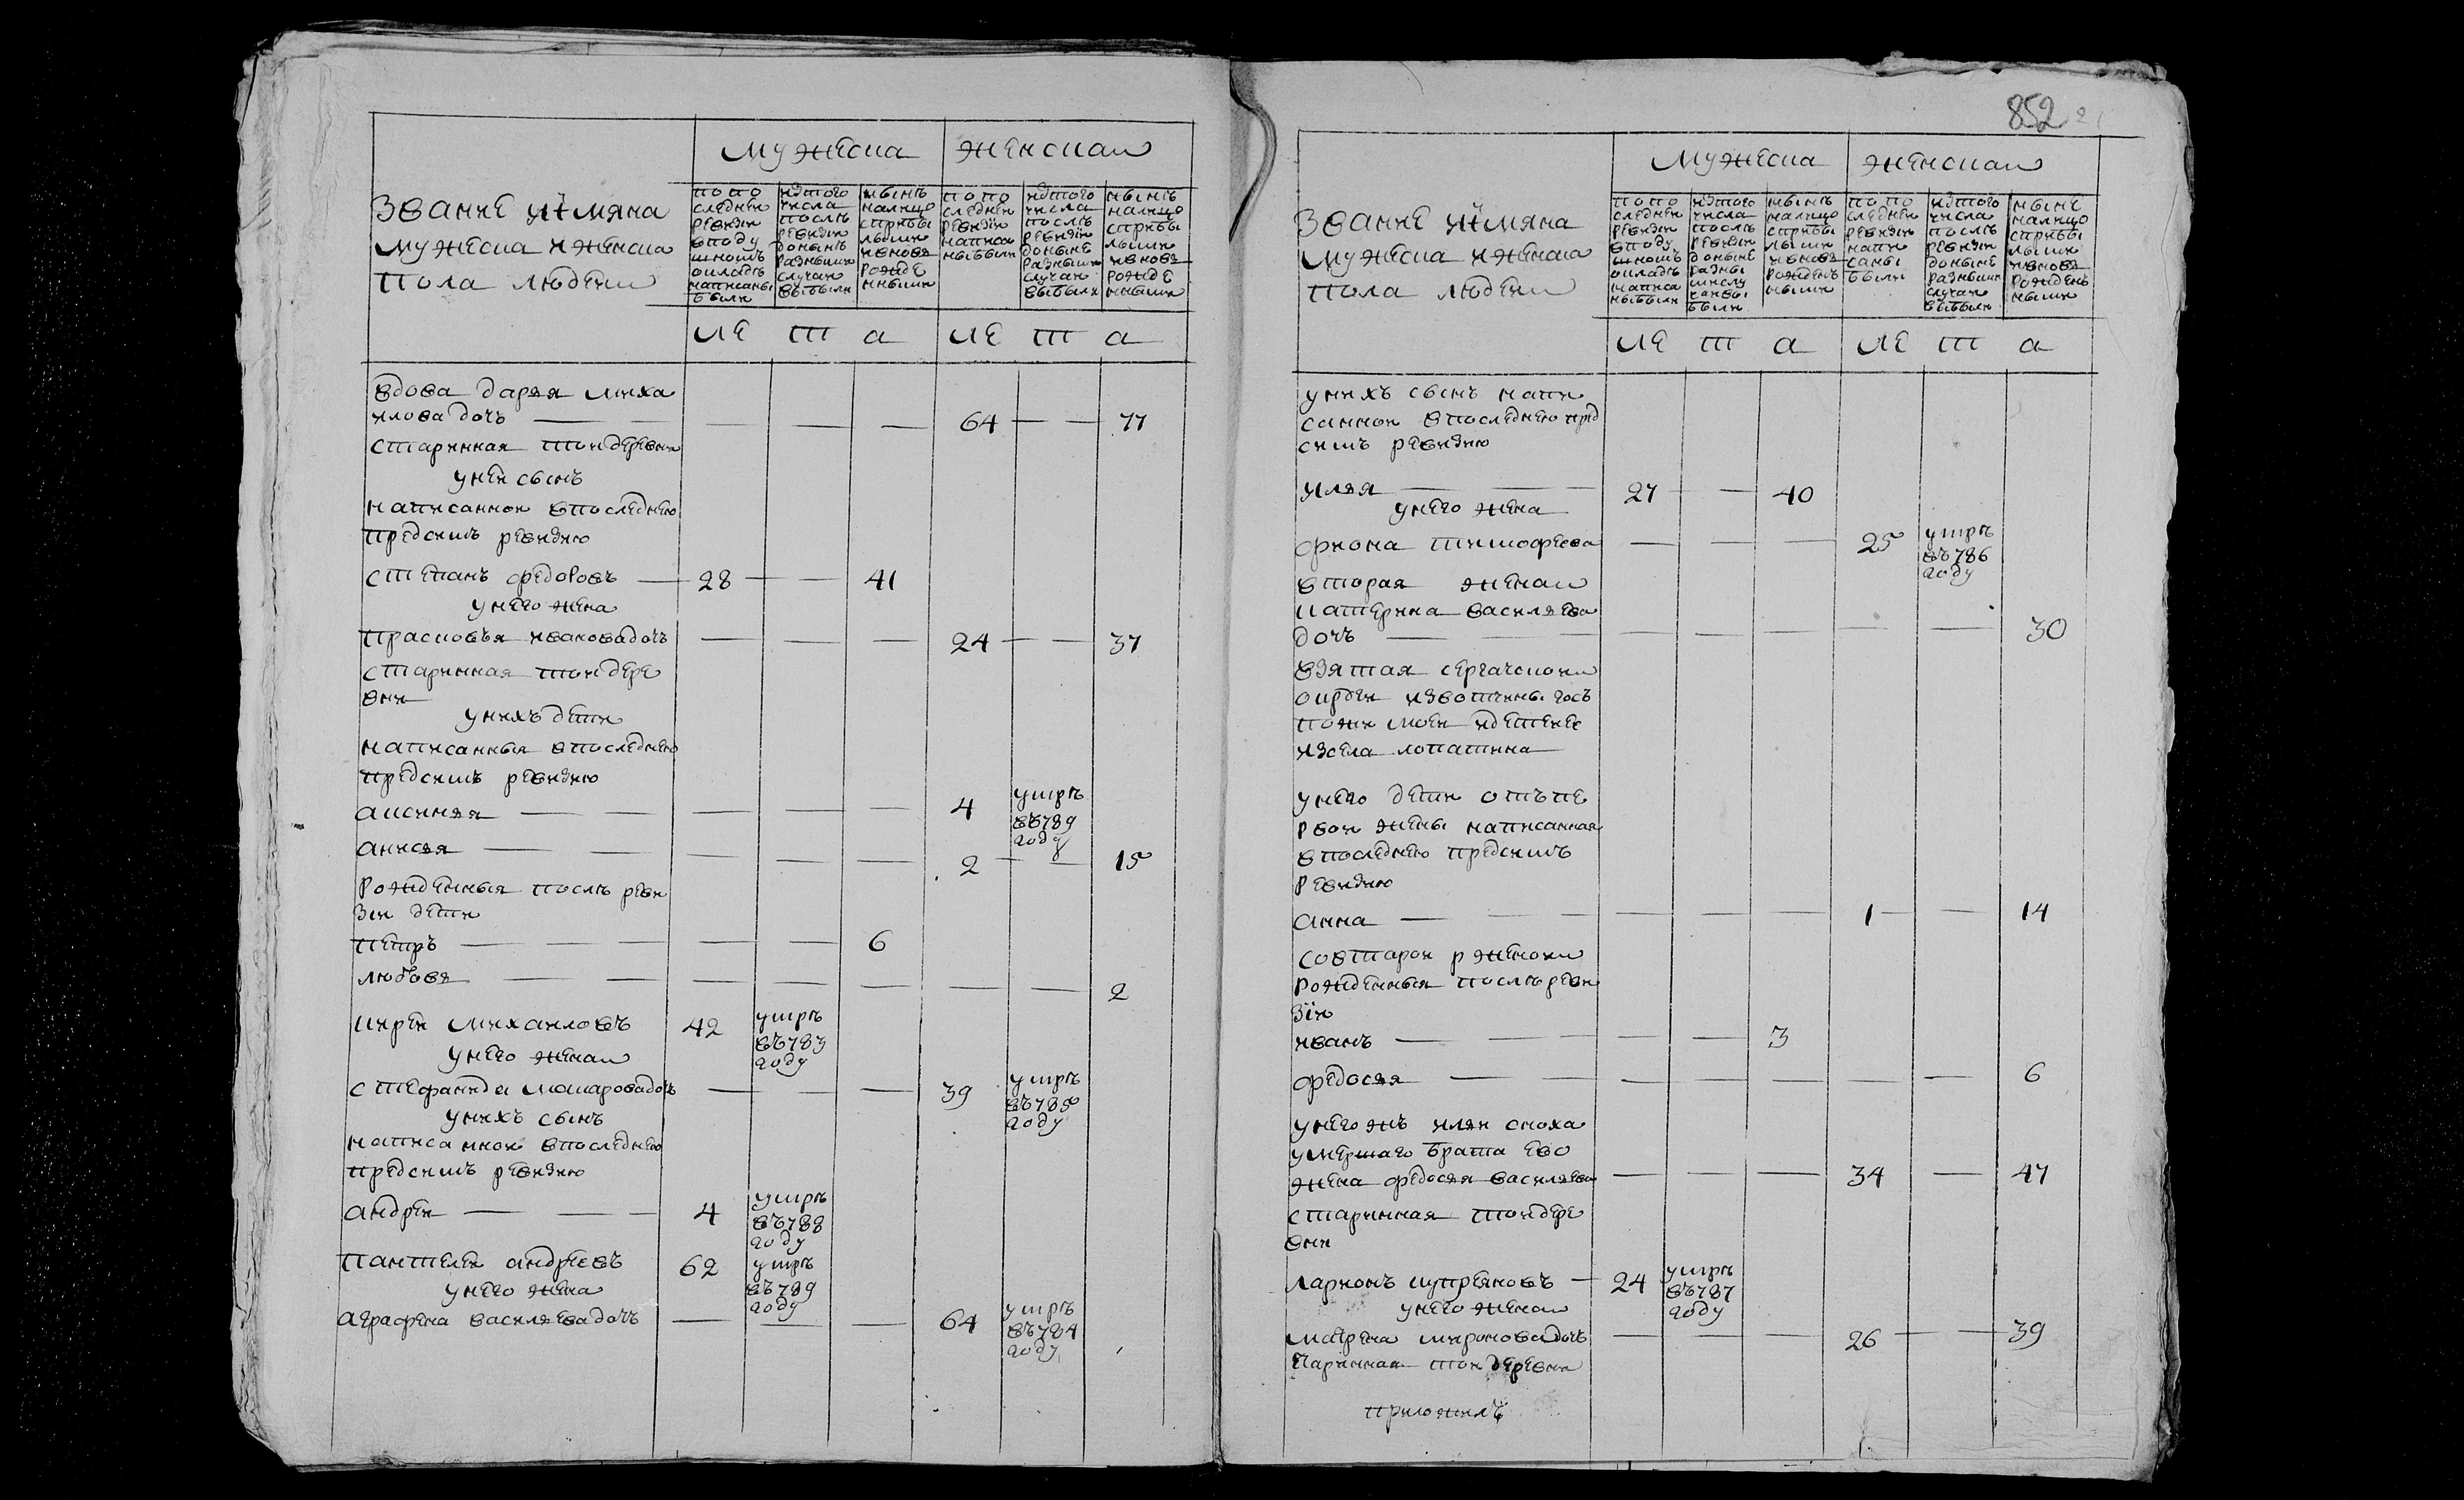 852
звание и имяна
мужеска и женска
пола людеи
мужеска
женскаго
по по
следнеи
ревизии
в поду
шномъ
окладѣ
написаны
были
ис того
числа
послѣ
ревизии
до нынѣ
разными
случаи
выбыли
нынѣ
налицо
с прибы
лыми
и вновь
рожде
нными
по по
следнеи
ревизии
написа
ны были
ис того
числа
послѣ
ревизии
до ныне
разными
случаи
выбыли
нынѣ
налицо
с прибы
лыми
и вновь
рожде
нными
ле т а ле т а
вдова дарья миха
илова дочь — — — — — 64 — — 77
старинная тои деревни
у неи сынъ
написаннои в последнею
пред симъ ревизию
степанъ федоровъ — 28 — — 41
у него жена
прасковья иванова дочь — — — 24 — — 37
старинная тои дере
вни
у нихъ дети
написанныя в последнею
пред симъ ревизию
аксинья — — — — — 4 умрѣ
въ 789
году
анисья — — — — — 2 — — 15
рожденныя послѣ реви
зіи дети
петръ — — — — — 6
любовь — — — — — — — 2
киреи михаиловъ 42 умрѣ
въ 783
году
у него жена
стефанида макарова дочь — — — 39 умрѣ
въ 785
году
у нихъ сынъ
написаннои в последнею
пред симъ ревизию
андреи — — — 4 умрѣ
въ 788
году
пантелеи андреевъ 62 умрѣ
въ 789
году
у него жена
аграфена васильева дочь — — — 64 умрѣ
въ 784
году
звание и имяна
мужеска и женска
пола людеи
мужеска
женскаго
по по
следнеи
ревизии
в поду
шномъ
окладѣ
написа
ны были
ис того
числа
послѣ
ревизии
до ныне
разны
ми слу
чаи вы
были
нынѣ
налицо
с прибы
лыми
и вновь
рожденъ
ными
по по
следнеи
ревизии
напи
саны
были
ис того
числа
послѣ
ревизии
до ныне
разными
случаи
выбыли
ныне
налицо
с прибы
лыми
и вновь
рожденъ
ными
ле т а ле т а
у нихъ сынъ напи
саннои в последнею пред
симъ ревизию
илья — — — 27 — — 40
у него жена
фиона тимофеева — — — 25 умрѣ
въ 786
году
вторая жена
катерина васильева
дочь — — — — — — — — 30
взятая сергачскои
округи из вотчины гось
пожи моеи
из села лопатина
у него дети отъ пе
рвои жены написанная
в последнею пред симъ
ревизию
анна — — — — — — 1 — — 14
со второи женои
рожденныя послѣ реви
зіи
иванъ — — — — — 3
федосья — — — — — — — 6
у него жъ ильи сноха
умершаго брата ево
жена федосья васильева — — — 34 — 47
старинная тои дере
вни
ларионъ куприяновъ — 24 умрѣ
въ 787
году
у него жена
матрена миронова дочь — — — 26 — — 39
старинная тои деревни
приложилъ